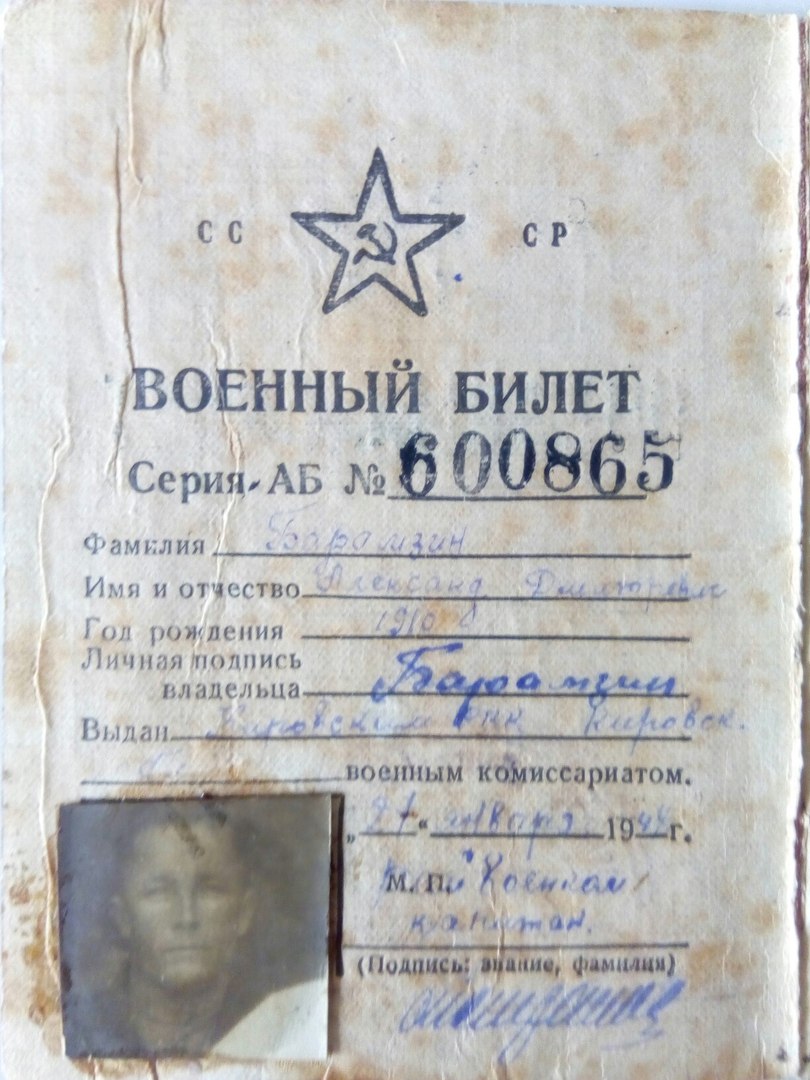 СС СР
ВОЕННЫЙ БИЛЕТ
Серия АБ № 600865
Фамилия Барамзин
Имя и отчество Александр Дмитриевич
Год рождения 1910
Личная подпись
владельца Барамзин
Выдан Кировским Кировск.
военным комиссариатом.
„27" января 1944 г.
М. П. Военком
капитан
(Подпись: звание, фамилия)